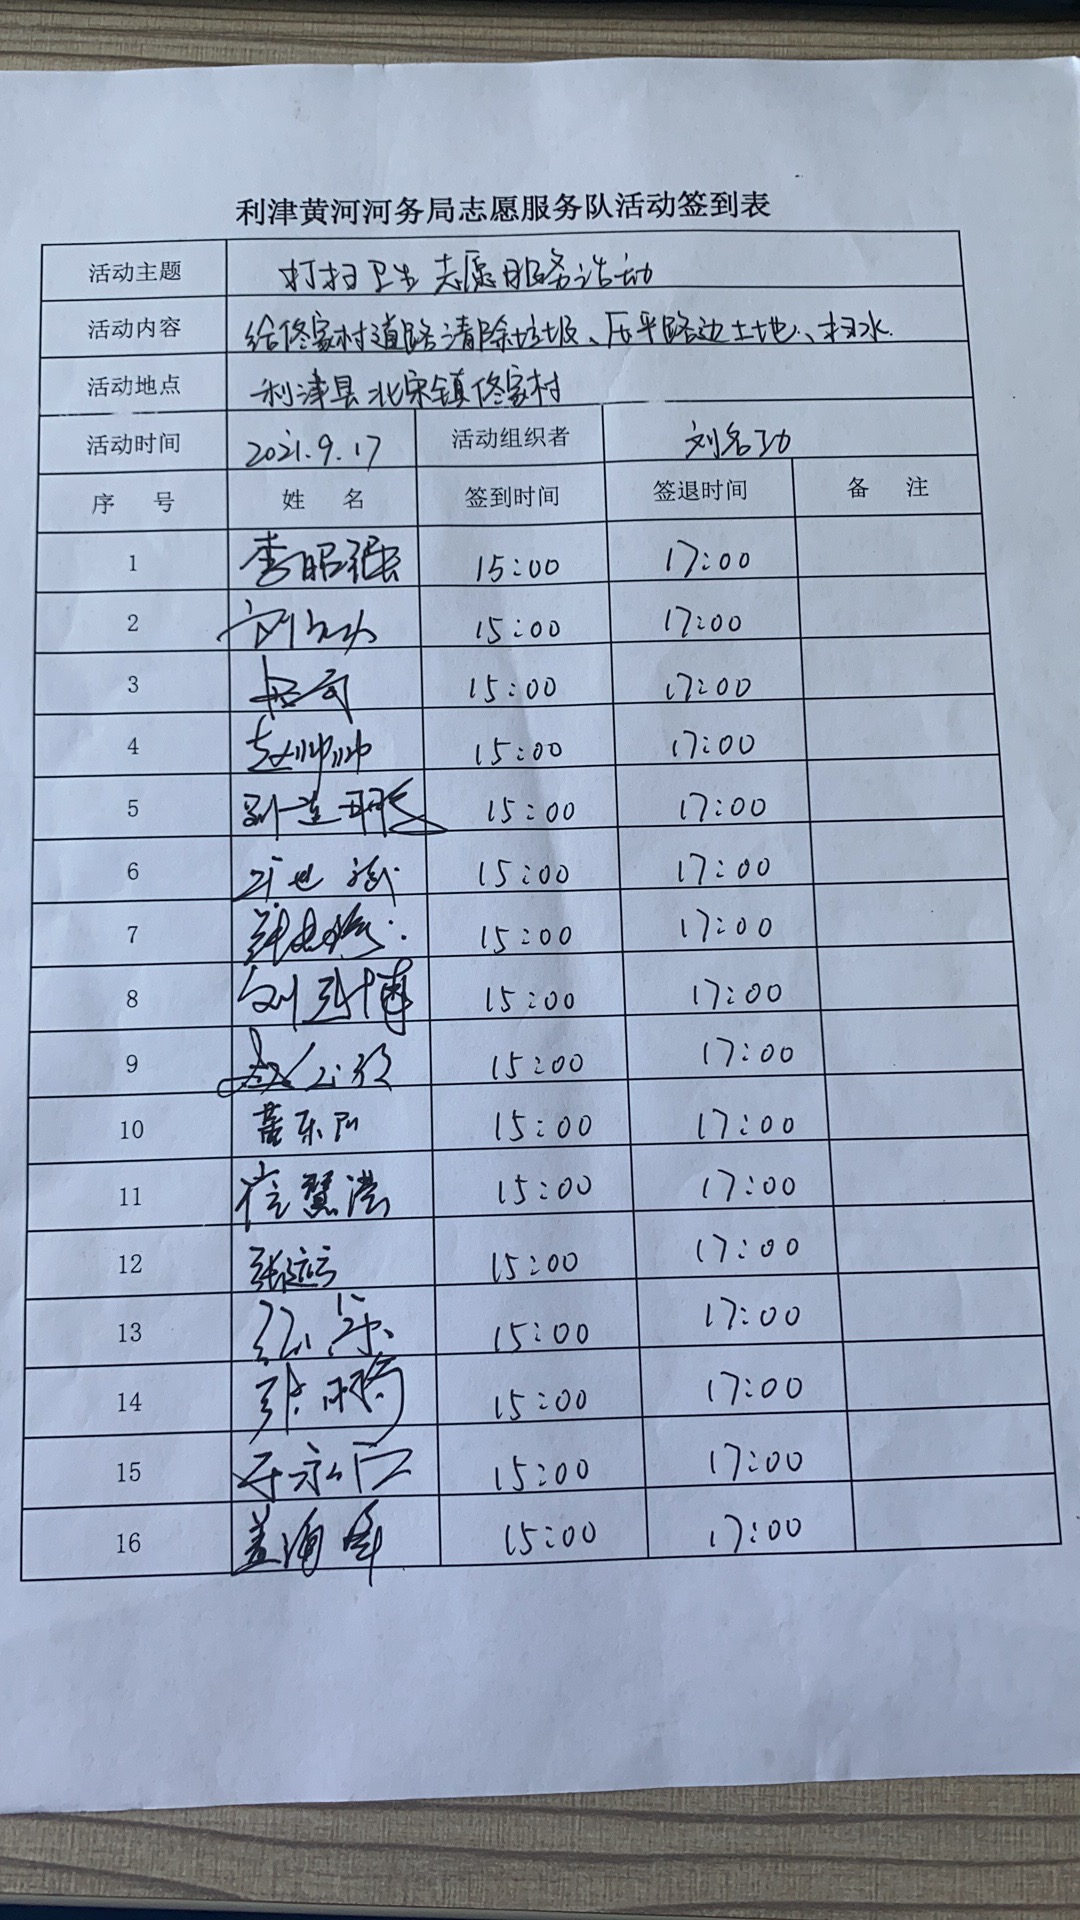 利津黄河河务局志愿服务队活动签到表
活动主题 打扫卫生志愿服务活动
活动内容 给佟家村道路清除垃圾、压平路边土地、扫水.
活动地点 利津县北宋镇佟家村
活动时间 2021.9.17 活动组织者 刘名功
序 号 姓 名 签到时间 签退时间 备 注
1 李昭强 15:00 17:00
2 15:00 17:00
3 15:00 17:00
4 赵帅帅 15:00 17:00
5 15:00 17:00
6 15:00 17:00
7 15:00 17:00
8 15:00 17:00
9 15:00 17:00
10 15:00 17:00
11 崔慧滢 15:00 17:00
12 15:00 17:00
13 15:00 17:00
14 15:00 17:00
15 15:00 17:00
16 盖海军 15:00 17:00